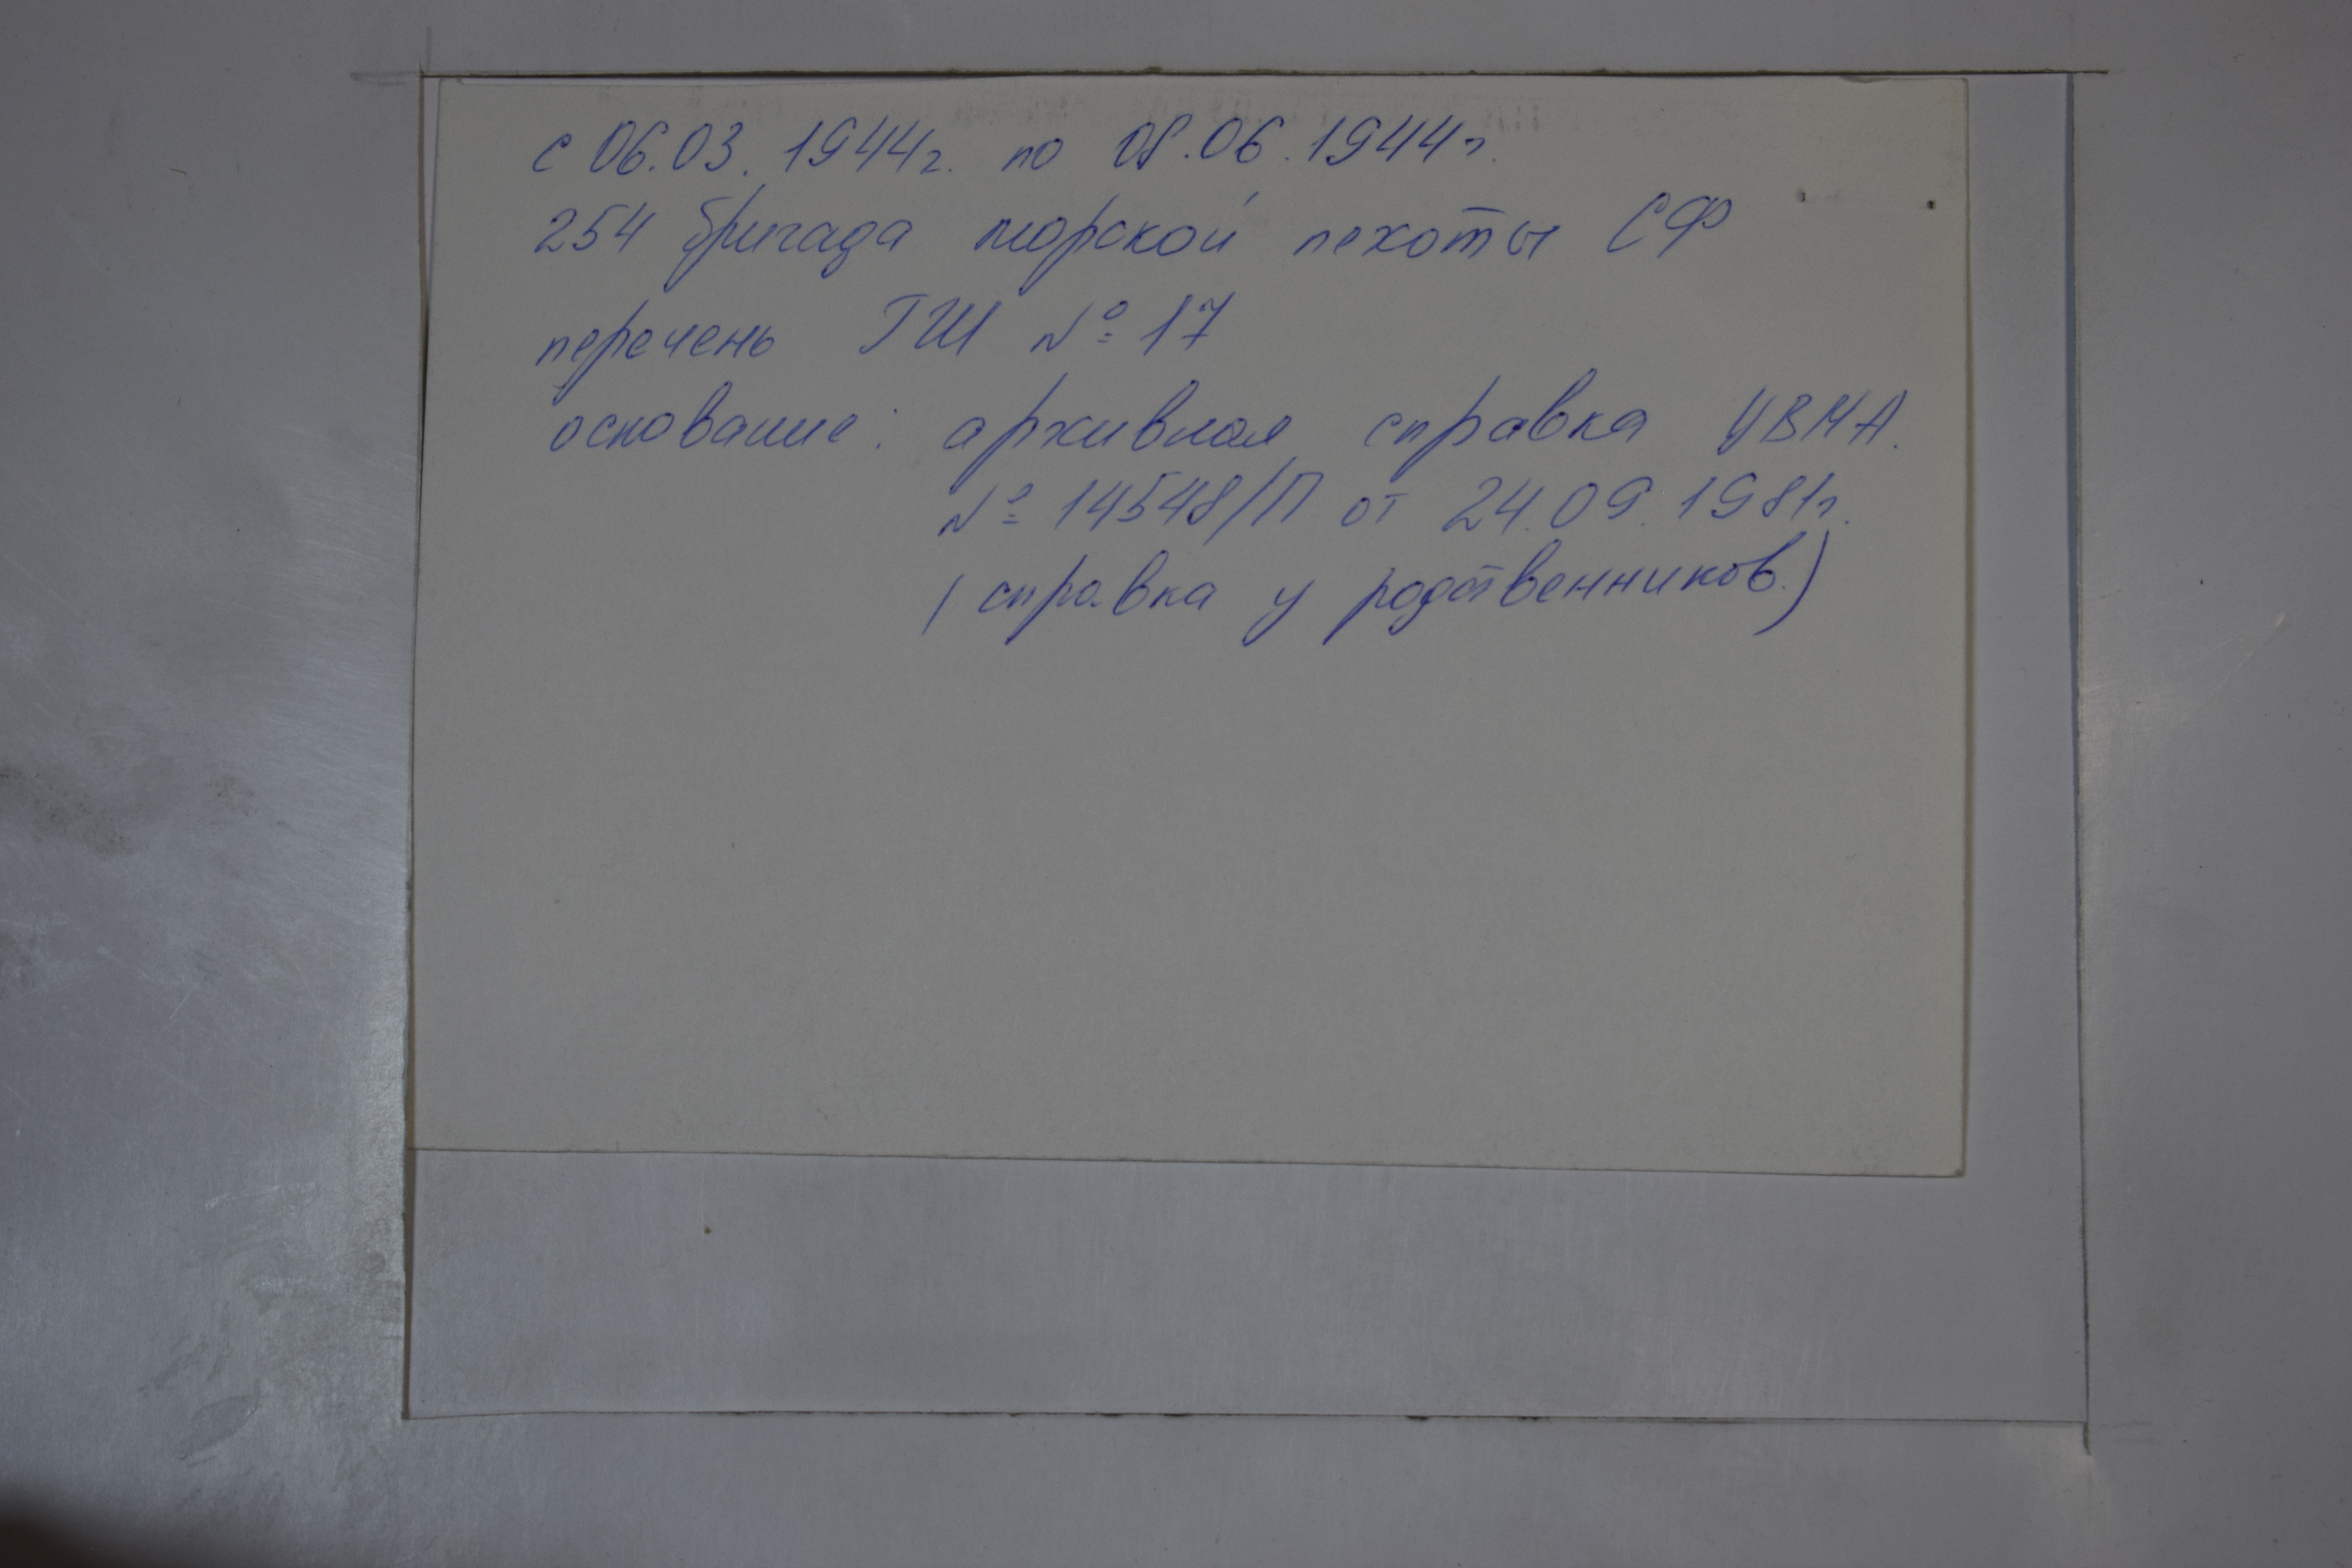 с 06.03.1944г. по 08.06.1944г.
254 бригада морской пехоты СФ
перечень ГШ № 17
основание: архивная справка ЦВМА.
№ 14548/П от 24.09.1981г.
(справка у родственников.)